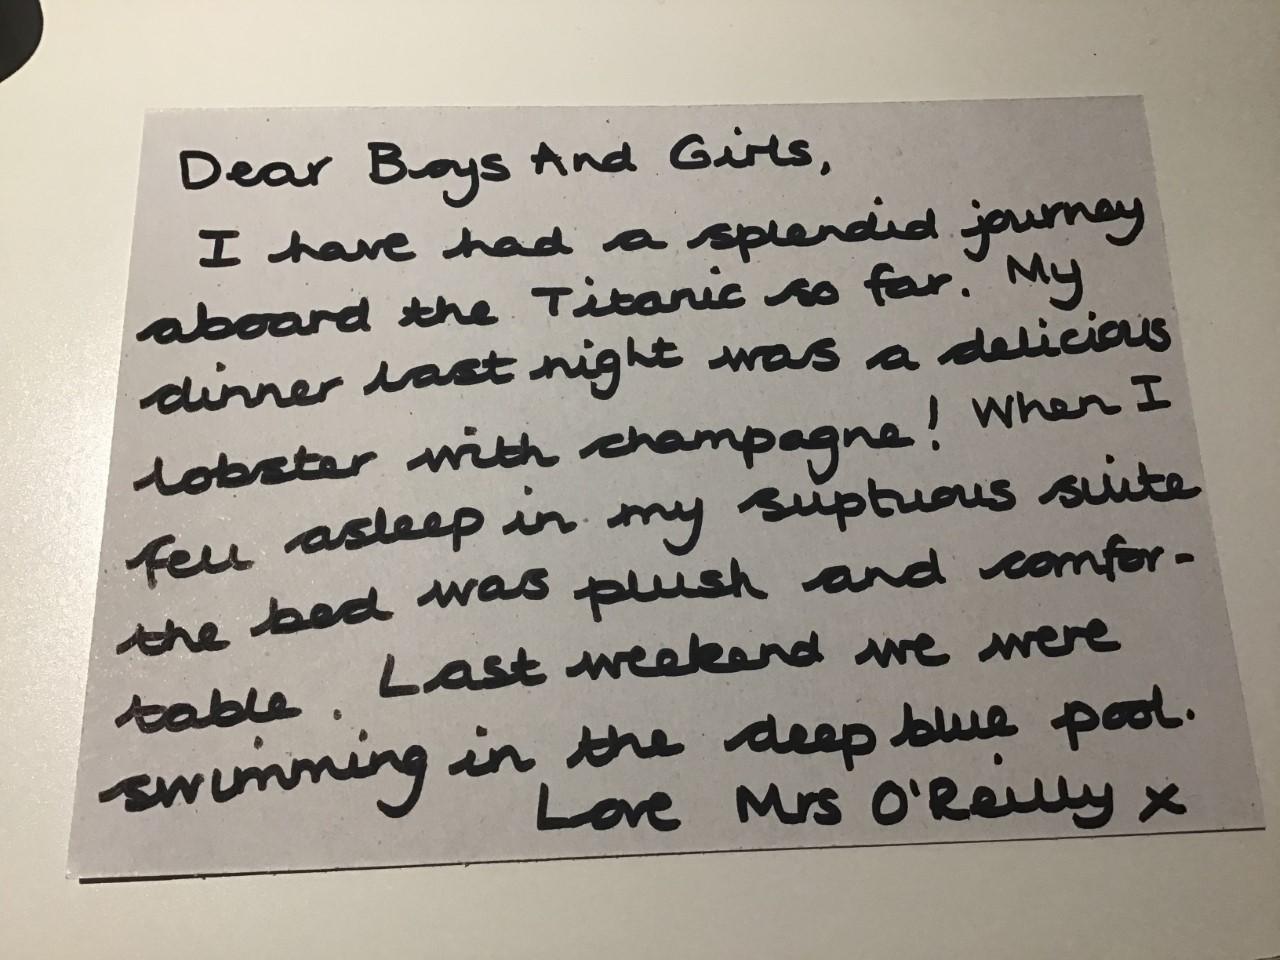 Dear Boys And Girls,
I have had a splendid journey
aboard the Titanic so far. My
dinner last night was a delicious
lobster with champagne! When I
fell asleep in my suptuous suite
the bed was plush and comfor-
table. Last weekend we were
swimming in the deep blue pool.
Love Mrs O'Reilly x